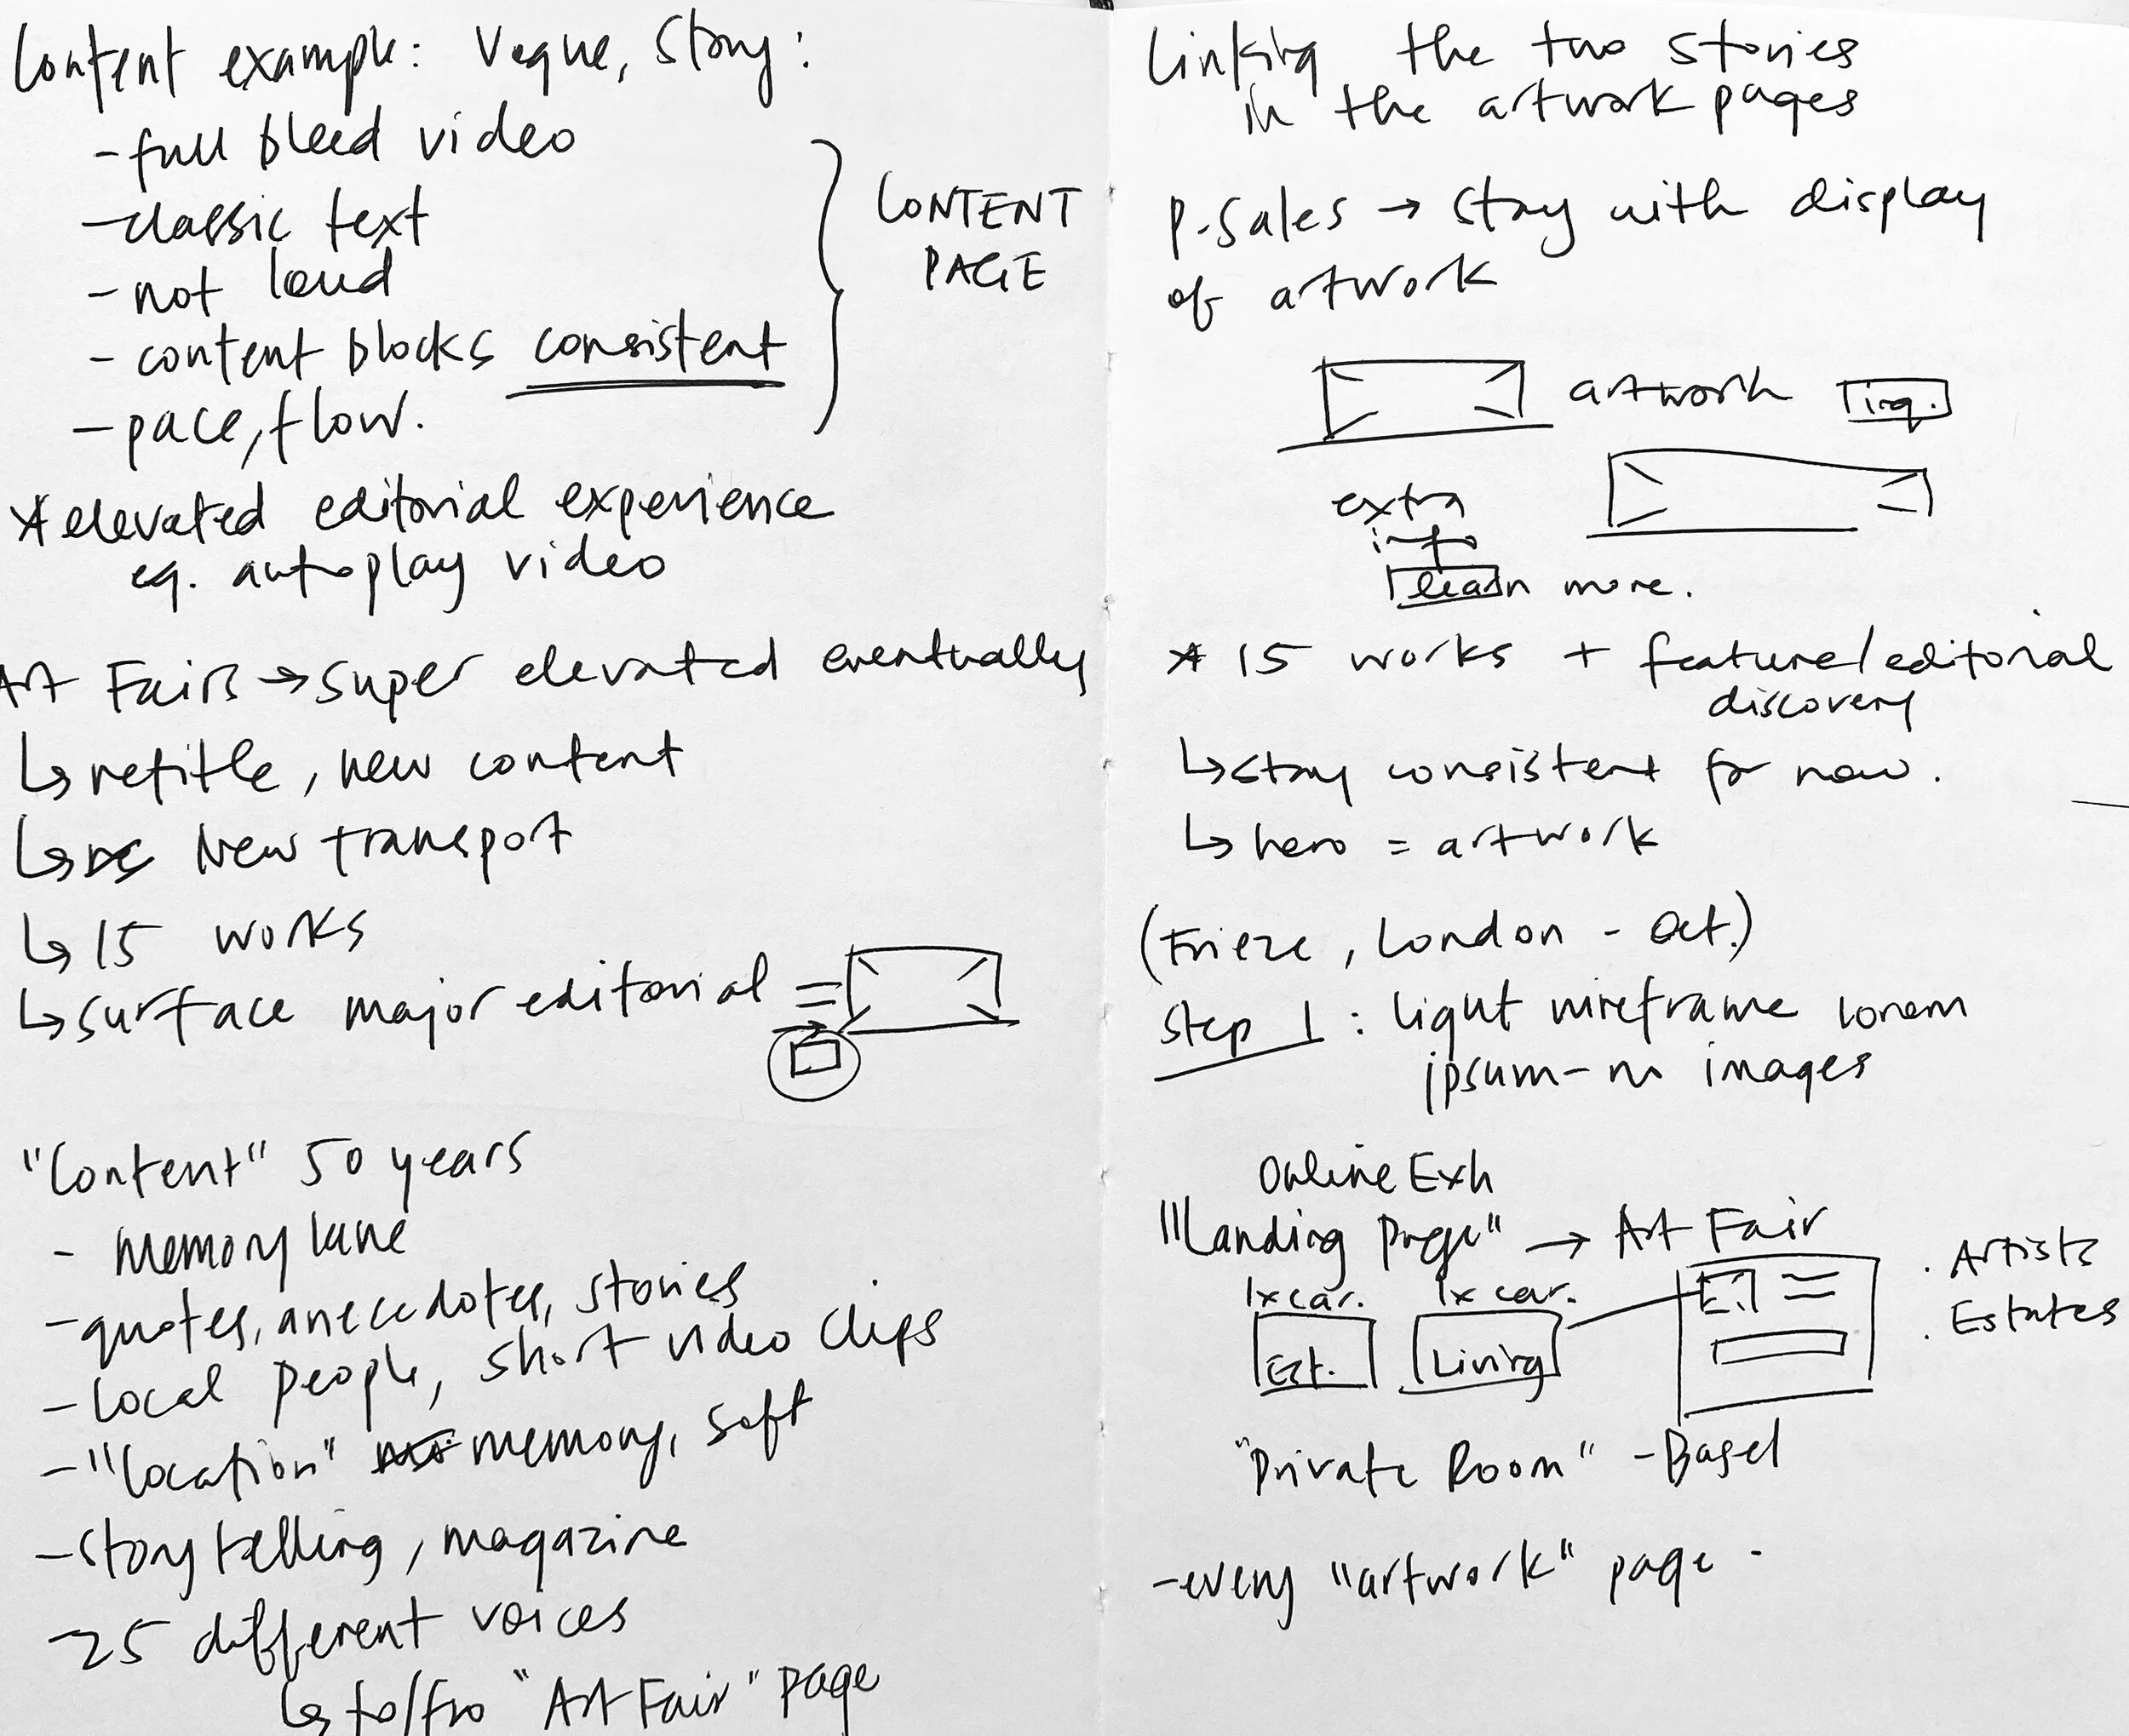 Content example: Vogue, Story:
- full bleed video
- classic text
- not loud
- content blocks consistent
- pace, flow.
CONTENT
PAGE
* elevated editorial experience
eg. autoplay video
Art Fairs → super elevated eventually
↳ retitle, new content
↳ New transport
↳ 15 works
↳ surface major editorial
"Content" 50 years
- memory lane
- quotes, anecedotes, stories
- local people, short video clips
- "location" memory, soft
- storytelling, magazine
- 25 different voices
↳ to/fro "Art Fair" page
Linking the two stories
in the artwork pages
P. Sales → stay with display
of artwork
artwork inq.
extra
info
learn more.
* 15 works + feature/editorial
discovery
↳ stay consistent for now.
↳ hero = artwork
(Frieze, London - Oct.)
Step 1: light wireframe lorem
ipsum - no images
Online Exh
"Landing page" → Art Fair
1x car. 1x car.
Est. Living
. Artists
. Estates
"Private Room" - Basel
- every "artwork" page -